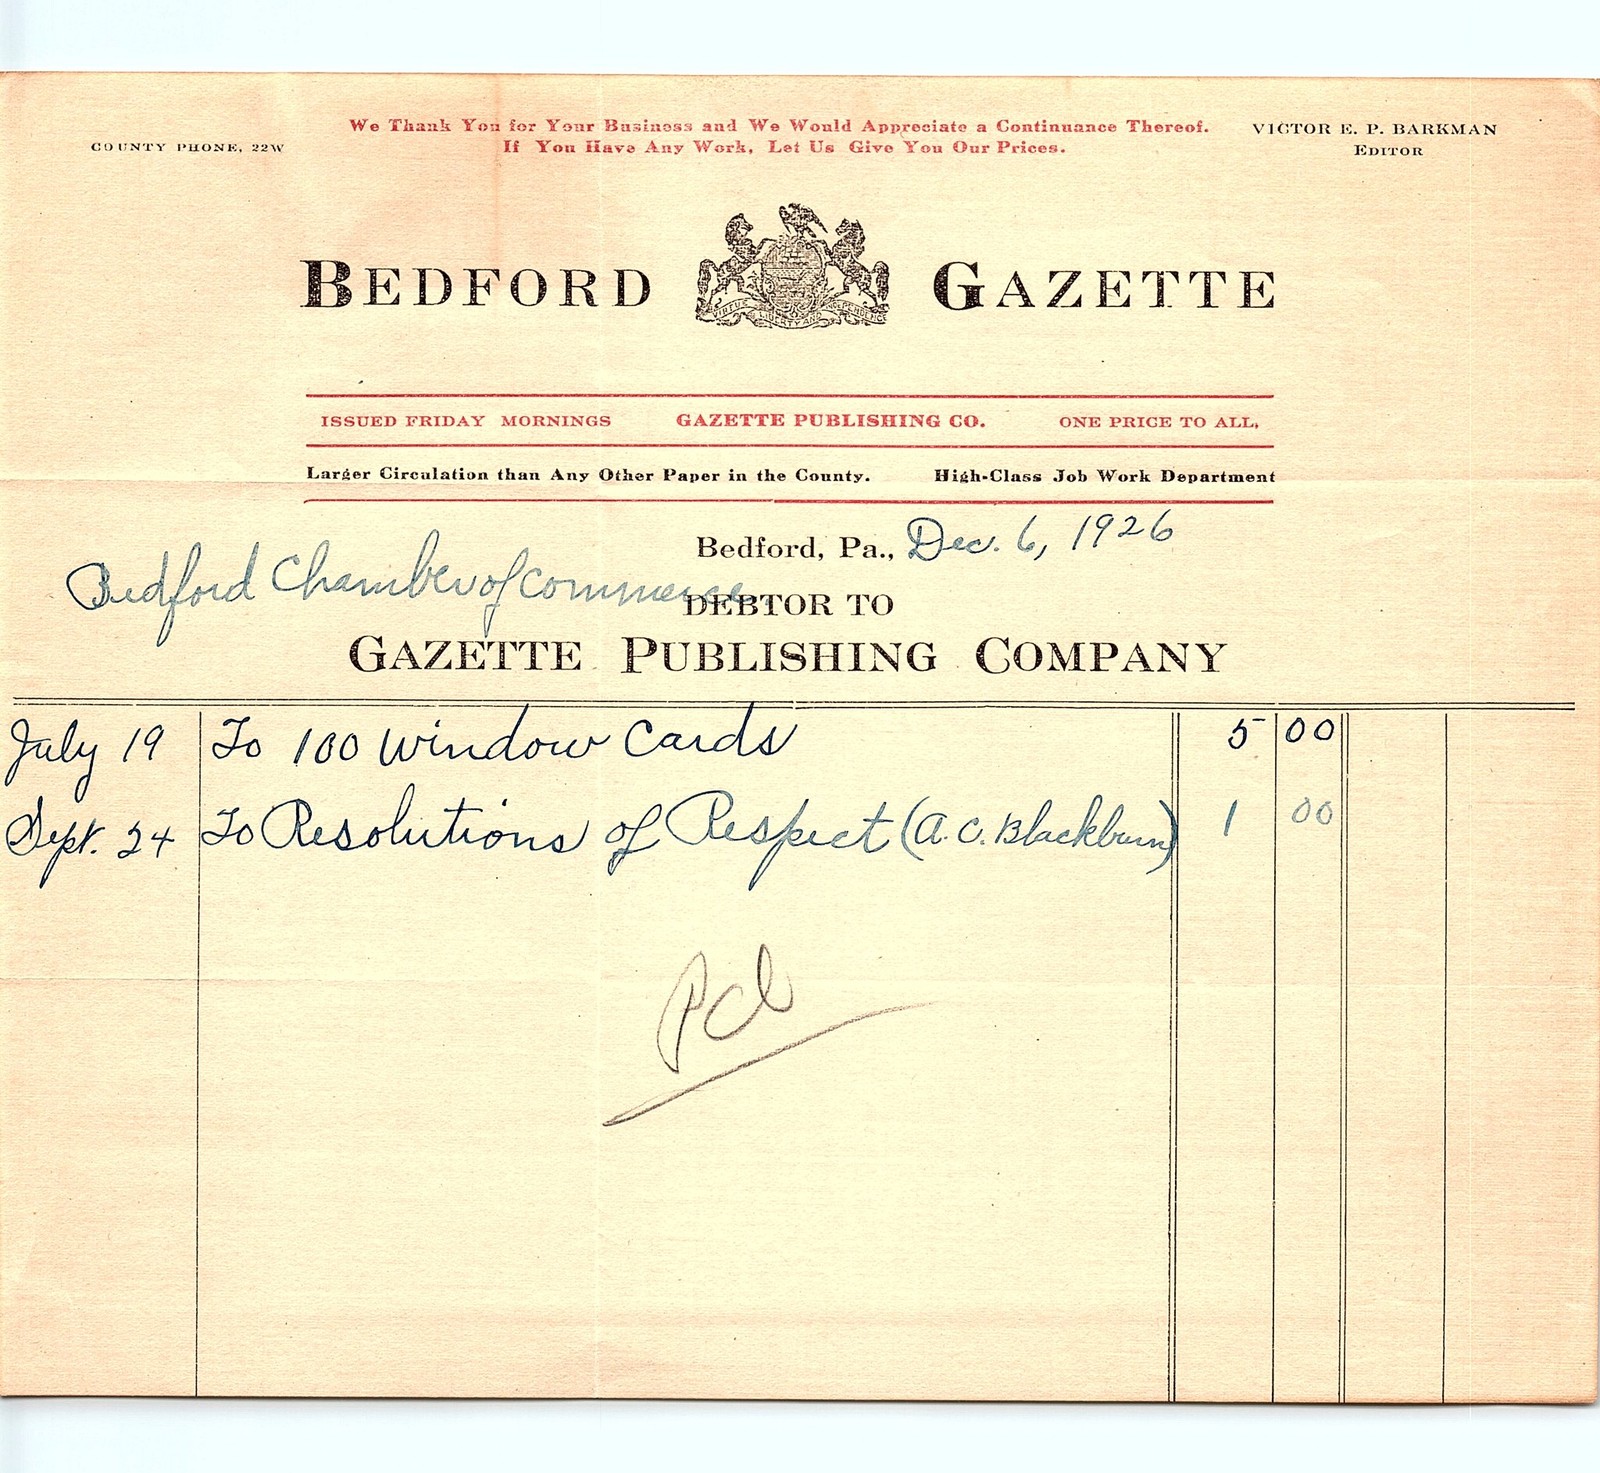 We Thank You for Your Business and We Would Appreciate a Continuance Thereof.
If You Have Any Work, Let Us Give You Our Prices.
COUNTY PHONE, 22W
VICTOR E. P. BARKMAN
EDITOR
BEDFORD GAZETTE
VIRTUE LIBERTY AND INDEPENDENCE
ISSUED FRIDAY MORNINGS GAZETTE PUBLISHING CO. ONE PRICE TO ALL,
Larger Circulation than Any Other Paper in the County. High-Class Job Work Department
Bedford, Pa., Dec. 6, 1926
Bedford Chamber of Commerce.
DEBTOR TO
GAZETTE PUBLISHING COMPANY
July 19 To 100 Window Cards 5 00
Sept. 24 To Resolutions of Respect (A. C. Blackburn) 1 00
Pd